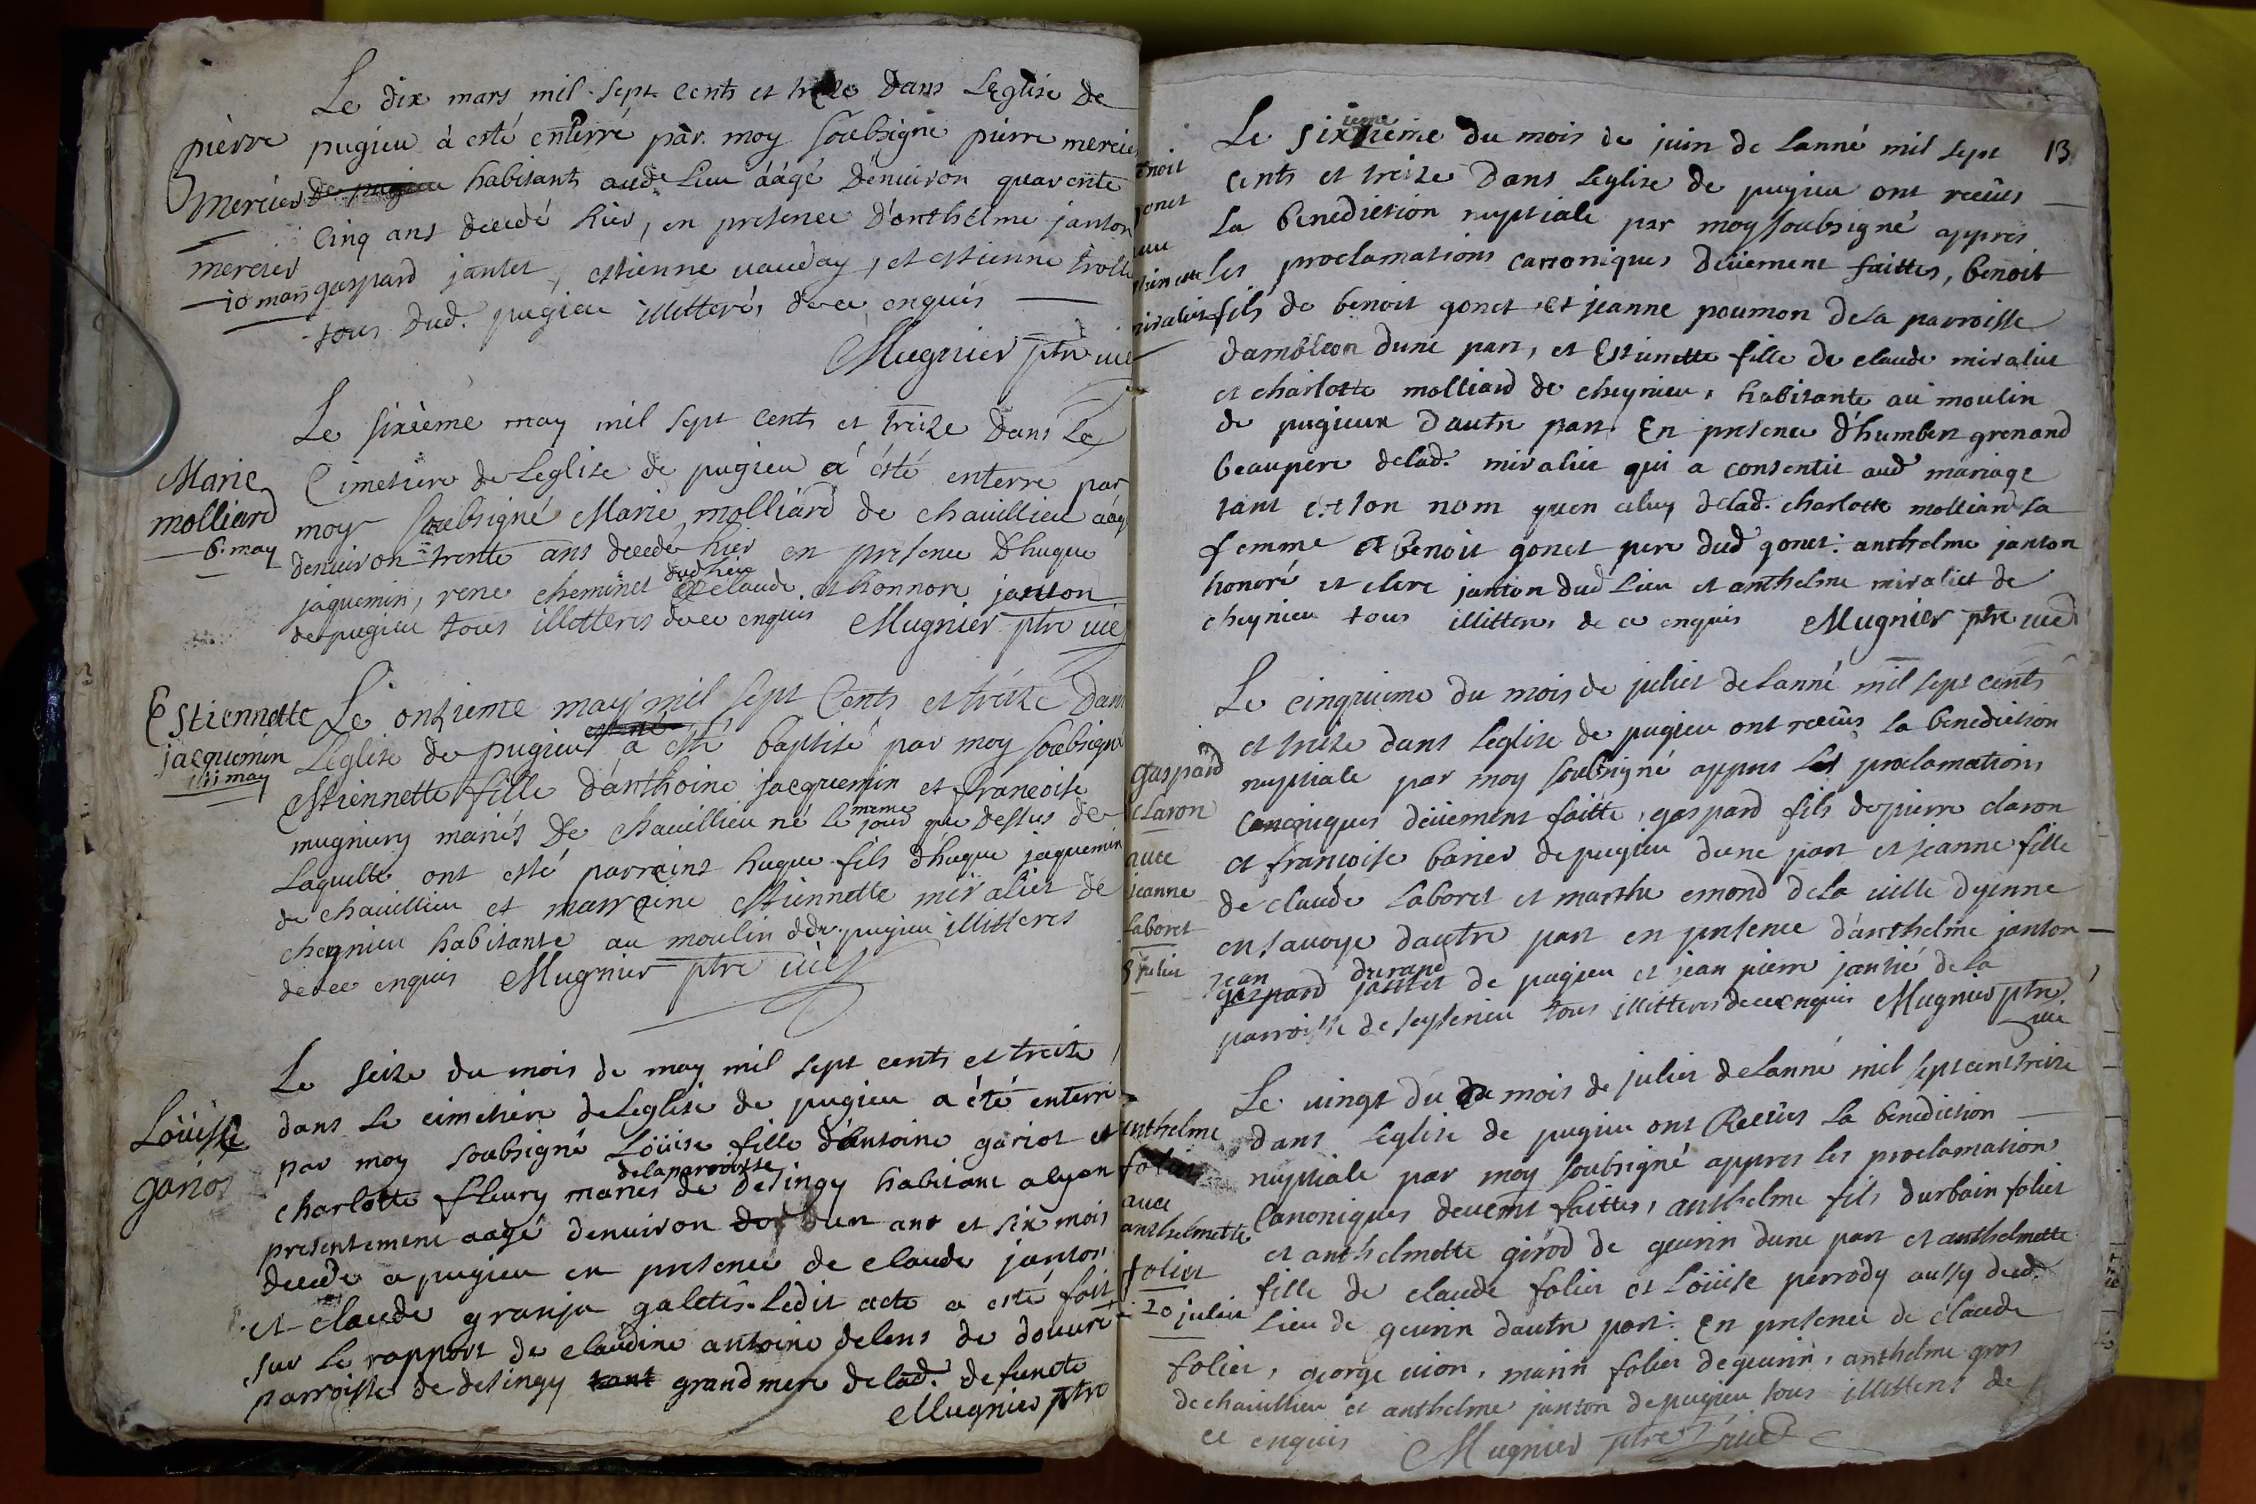 Le dix mars mil sept cents et treize dans Leglise de
pierre pugieu à esté enterré par moy soubsigné pierre mercier
mercier de pugieu habitants aud. Lieu ââgé denuiron quarente
cinq ans decedé hier, en presence d'anthelme janton
mercier
10 mars gaspard jantet, estienne vauday, et estienne
tous dud. pugieu illitterés de ce enquis
Mugnier ptre vic
Le sixième may mil sept cents et treize dans Le
Marie Cimetiere de Leglise de pugieu a ésté enterre par
molliard moy soubsigné Marie molliard de chauillieu aag
6. may denuiron trente ans decedé hier en presence d'hugue
jaquemin, rene cheminet dud lieu & claude et honnore janton
de pugieu tous illitteres de ce enquis Mugnier ptre vic
Estiennette Le onzieme may mil sept Cents et treize dans
jacquemin Leglise de pugieu a esté baptisé par moy soubsigné
11 may Estiennette fille danthoine jacquemin et francoise
mugniery mariés de chauillieu né le meme jour que dessus de
Laquelle ont esté parrains hugue fils d'hugue jaquemin
de chauillieu et marraine estiennette miraliet de
cheynieu habitante au moulin de pugieu illitteres
de ce enquis Mugnier ptre vic
Le seize du mois de may mil sept cents et treize
Loüise dans Le cimetiere de Leglise de pugieu a été enterré
gariot par moy soubsigné Loüise fille d'antoine gariot et
charlotte fleury mariés de la parroisse de desingy habitant a lyon
presentement aagé denuiron dun ans et six mois
decede a pugieu en presence de claude janton
et claude granja Ledit acte a esté fait
sur Le rapport de claudine antoine delens de douure
parroisse de desingy tant grand mere de lad. defuncte
Mugnier ptre
13
Le sixieme du mois de juin de Lanné mil sept
cents et treize dans Leglise de pugieu ont receüs
La benediction nuptiale par moy soubsigné appres
les proclamations canoniques deüement faittes, benoit
fils de benoit gonet et jeanne poumon de la parroisse
dambleon dune part, et Estienette fille de claude miraliet
et charlotte molliard de cheynieu, habitante au moulin
de pugieux d'autre part. En presence d'humbert grenand
beaupere de lad. miraliet qui a consentit aud mariage
tant en son nom quen celuy de lad. charlotte molliard sa
femme et benoit gonet pere dud gonet: anthelme janton
honoré et clere janton dud Lieu et anthelme miraliet de
cheynieu tous illitteres de ce enquis Mugnier ptre vic
Le cinquieme du mois de juliet de Lanné mil sept cents
et treize dans Leglise de pugieu ont receüs la benediction
gaspard nuptiale par moy soubsigné appres Les proclamations
claron canoniques deüement faitte, gaspard fils de pierre claron
auec et francoise barier de pugieu dune part et jeanne fille
jeanne de claude Laboret et marthe emond de la uille dyenne
Laboret en sauoye dautre part en presence d'anthelme janton
5 juliet jean durand gaspard jantet de pugieu et jean pierre jantié de la
parroisse de seyserieu tous illitteres de ce enquis Mugnier ptre
vic
Le uingt du de mois de juliet de Lanné mil sept cent treize
anthelme dans Leglise de pugieu ont Receüs La benediction
foliet nuptiale par moy soubsigné appres les proclamations
auec Canoniques deuemt faittes, anthelme fils durbain foliet
anthelmette et anthelmette girod de geurin dune part et anthelmette
foliet fille de claude foliet et Loüise perrody aussy dud.
20 juliet Lieu de geurin dautre part. En presence de claude
foliet, george uion, marin foliet de geurin, anthelme gros
de chauillieu et anthelme janton de pugieu tous illitteres de
ce enquis Mugnier ptre vic